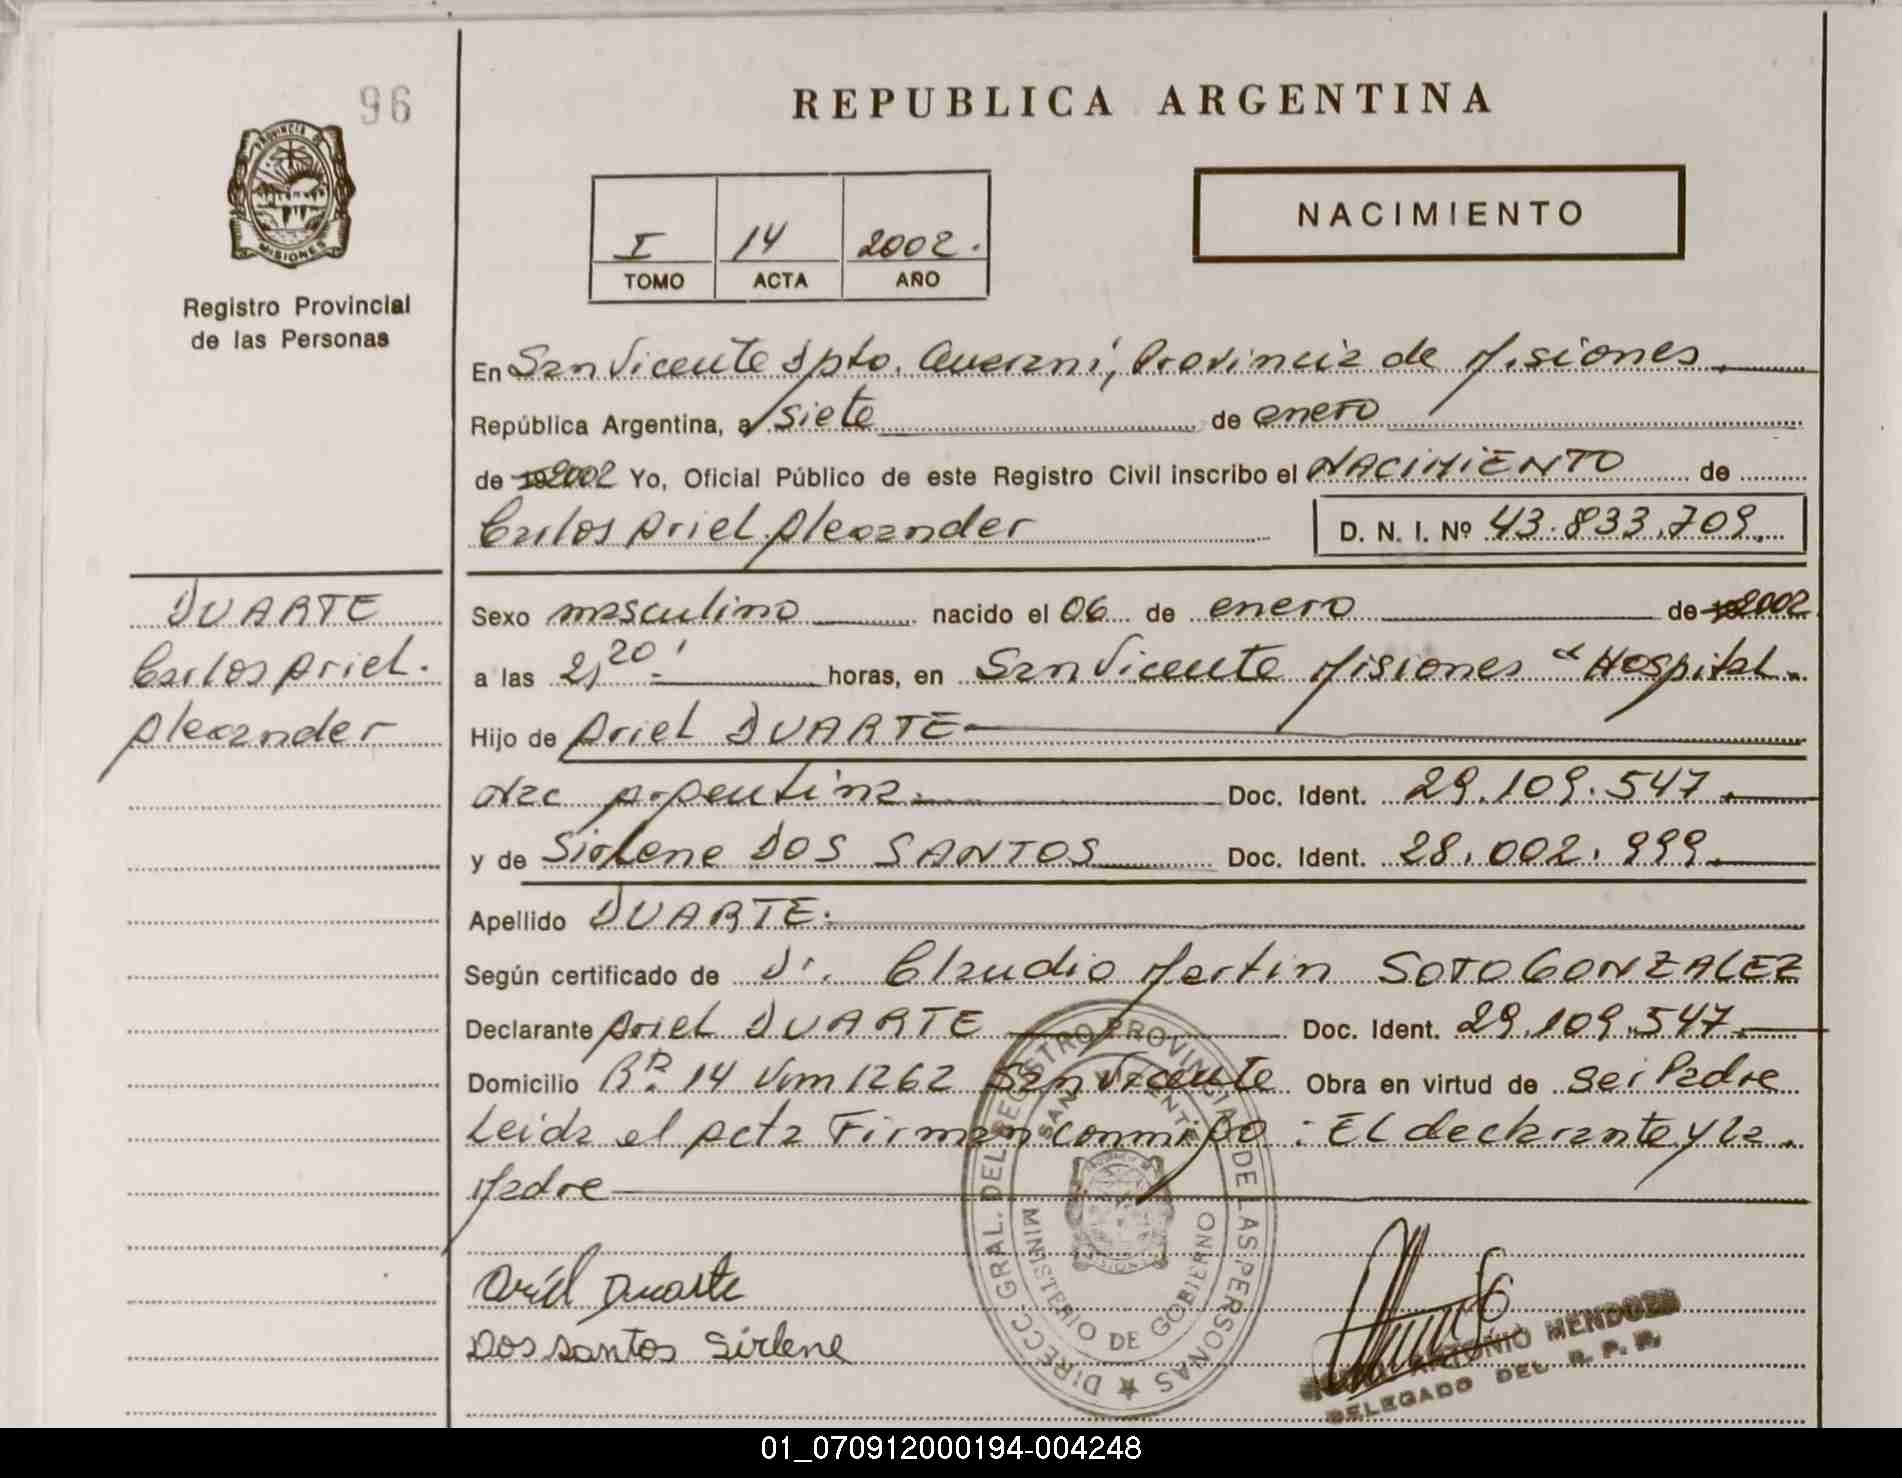 96
REPUBLICA ARGENTINA
PROVINCIA DE
MISIONES
Registro Provincial
de las Personas
I 14 2002.
TOMO ACTA AÑO
NACIMIENTO
En San Vicente Dpto. Guaraní, Provincia de Misiones
República Argentina, a siete de enero
de 2002 Yo, Oficial Público de este Registro Civil inscribo el NACIMIENTO de
Carlos Ariel Alexander D. N. I. Nº 43.833.709
DUARTE
Carlos Ariel.
Alexander
Sexo masculino nacido el 06 de enero de 2002
a las 2,20' horas, en San Vicente Misiones "Hospital.
Hijo de Ariel DUARTE
Nac Argentina. Doc. Ident. 29.109.547.
y de Sirlene DOS SANTOS Doc. Ident. 28.002.999.
Apellido DUARTE.
Según certificado de Dr. Claudio Martin SOTO GONZALEZ
Declarante Ariel DUARTE Doc. Ident. 29.109.547.
Domicilio 14 1262 San Vicente Obra en virtud de ser Padre
Leida el acta Firman conmigo: El declarante y la
Madre
Ariel Duarte
Dos santos Sirlene
DIRECC. GRAL. DEL REGISTRO PROVINCIAL DE LAS PERSONAS
SAN VICENTE
MINISTERIO DE GOBIERNO
ANTONIO MENDOZA
DELEGADO DEL R. P. P.
01_070912000194-004248